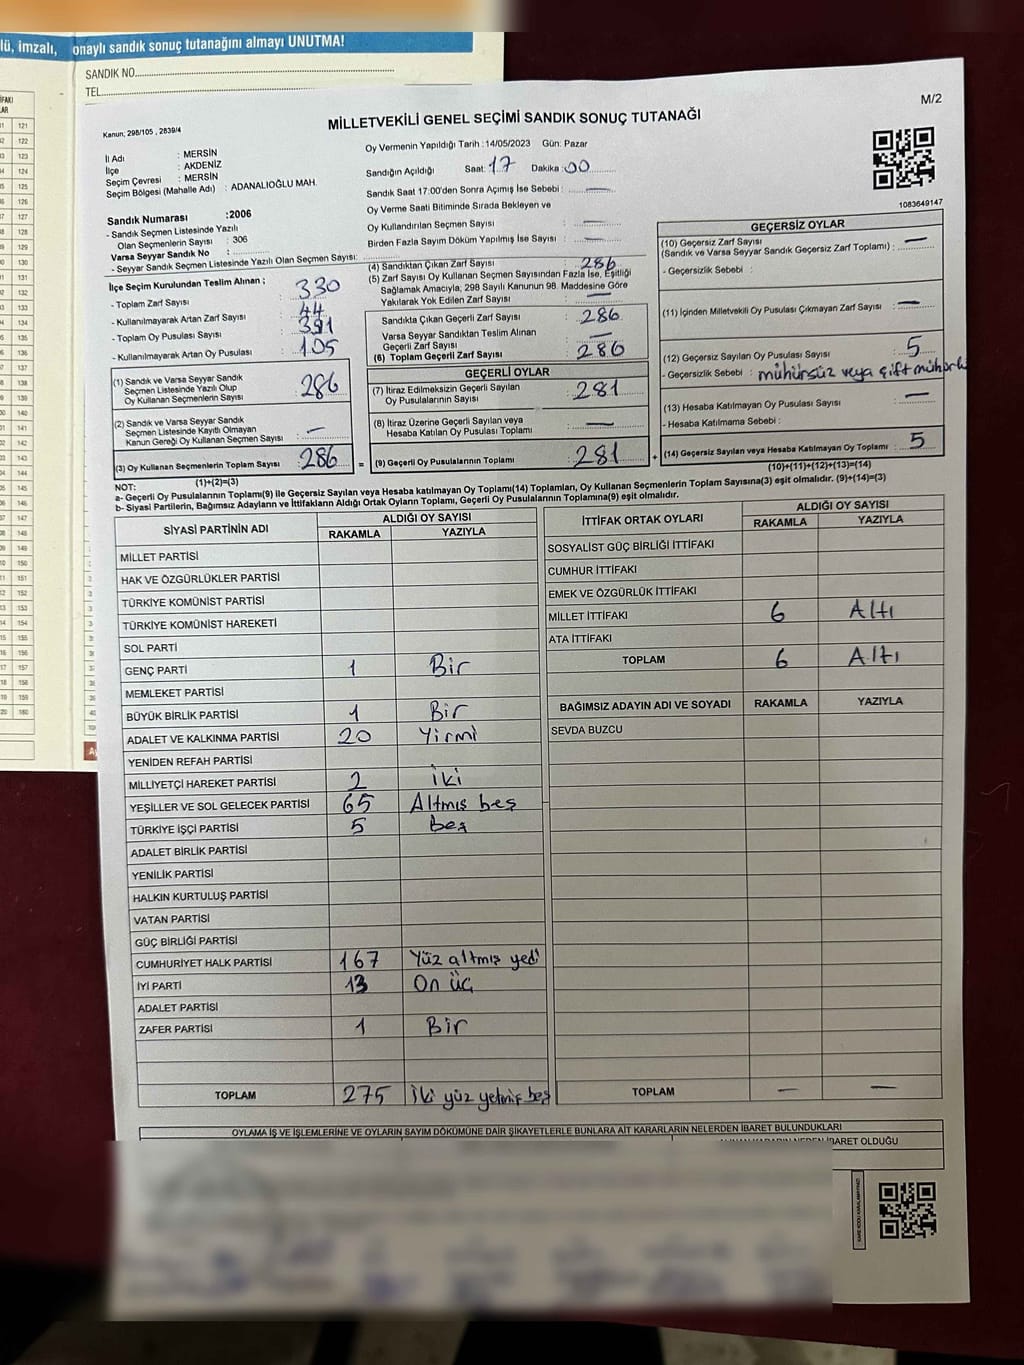 lü, imzalı, onaylı sandık sonuç tutanağını almayı UNUTMA!
SANDIK NO
TEL
M/2
Kanun; 298/105 , 2839/4
MİLLETVEKİLİ GENEL SEÇİMİ SANDIK SONUÇ TUTANAĞI
İl Adı : MERSİN
İlçe : AKDENİZ
Seçim Çevresi : MERSİN
Seçim Bölgesi (Mahalle Adı) : ADANALIOĞLU MAH.
Oy Vermenin Yapıldığı Tarih : 14/05/2023 Gün: Pazar
Sandığın Açıldığı Saat: 17 Dakika : 00
Sandık Saat 17:00'den Sonra Açımış İse Sebebi : —
Oy Verme Saati Bitiminde Sırada Bekleyen ve
Oy Kullandırılan Seçmen Sayısı : —
Birden Fazla Sayım Döküm Yapılmış İse Sayısı : —
1083649147
Sandık Numarası :2006
- Sandık Seçmen Listesinde Yazılı
Olan Seçmenlerin Sayısı : 306
Varsa Seyyar Sandık No :
- Seyyar Sandık Seçmen Listesinde Yazılı Olan Seçmen Sayısı:
İlçe Seçim Kurulundan Teslim Alınan ;
- Toplam Zarf Sayısı : 330
- Kullanılmayarak Artan Zarf Sayısı : 44
- Toplam Oy Pusulası Sayısı : 391
- Kullanılmayarak Artan Oy Pusulası : 105
(1) Sandık ve Varsa Seyyar Sandık
Seçmen Listesinde Yazılı Olup
Oy Kullanan Seçmenlerin Sayısı : 286
(2) Sandık ve Varsa Seyyar Sandık
Seçmen Listesinde Kayıtlı Olmayan
Kanun Gereği Oy Kullanan Seçmen Sayısı : —
(3) Oy Kullanan Seçmenlerin Toplam Sayısı : 286
(1)+(2)=(3)
(4) Sandıktan Çıkan Zarf Sayısı : 286
(5) Zarf Sayısı Oy Kullanan Seçmen Sayısından Fazla İse, Eşitliği
Sağlamak Amacıyla; 298 Sayılı Kanunun 98. Maddesine Göre
Yakılarak Yok Edilen Zarf Sayısı : —
Sandıkta Çıkan Geçerli Zarf Sayısı : 286
Varsa Seyyar Sandıktan Teslim Alınan
Geçerli Zarf Sayısı : —
(6) Toplam Geçerli Zarf Sayısı : 286
GEÇERLİ OYLAR
(7) İtiraz Edilmeksizin Geçerli Sayılan
Oy Pusulalarının Sayısı : 281
(8) İtiraz Üzerine Geçerli Sayılan veya
Hesaba Katılan Oy Pusulası Toplamı : —
= (9) Geçerli Oy Pusulalarının Toplamı : 281
GEÇERSİZ OYLAR
(10) Geçersiz Zarf Sayısı
(Sandık ve Varsa Seyyar Sandık Geçersiz Zarf Toplamı) : —
- Geçersizlik Sebebi :
(11) İçinden Milletvekili Oy Pusulası Çıkmayan Zarf Sayısı : —
(12) Geçersiz Sayılan Oy Pusulası Sayısı : 5
- Geçersizlik Sebebi : mühürsüz veya çift mühürlü
(13) Hesaba Katılmayan Oy Pusulası Sayısı : —
- Hesaba Katılmama Sebebi :
+ (14) Geçersiz Sayılan veya Hesaba Katılmayan Oy Toplamı : 5
(10)+(11)+(12)+(13)=(14)
NOT:
a- Geçerli Oy Pusulalarının Toplamı(9) ile Geçersiz Sayılan veya Hesaba katılmayan Oy Toplamı(14) Toplamları, Oy Kullanan Seçmenlerin Toplam Sayısına(3) eşit olmalıdır. (9)+(14)=(3)
b- Siyasi Partilerin, Bağımsız Adayların ve İttifakların Aldığı Ortak Oyların Toplamı, Geçerli Oy Pusulalarının Toplamına(9) eşit olmalıdır.
SİYASİ PARTİNİN ADI ALDIĞI OY SAYISI
RAKAMLA YAZIYLA
MİLLET PARTİSİ
HAK VE ÖZGÜRLÜKLER PARTİSİ
TÜRKİYE KOMÜNİST PARTİSİ
TÜRKİYE KOMÜNİST HAREKETİ
SOL PARTİ
GENÇ PARTİ 1 Bir
MEMLEKET PARTİSİ
BÜYÜK BİRLİK PARTİSİ 1 Bir
ADALET VE KALKINMA PARTİSİ 20 Yirmi
YENİDEN REFAH PARTİSİ
MİLLİYETÇİ HAREKET PARTİSİ 2 İki
YEŞİLLER VE SOL GELECEK PARTİSİ 65 Altmış beş
TÜRKİYE İŞÇİ PARTİSİ 5 beş
ADALET BİRLİK PARTİSİ
YENİLİK PARTİSİ
HALKIN KURTULUŞ PARTİSİ
VATAN PARTİSİ
GÜÇ BİRLİĞİ PARTİSİ
CUMHURİYET HALK PARTİSİ 167 Yüz altmış yedi
İYİ PARTİ 13 On üç
ADALET PARTİSİ
ZAFER PARTİSİ 1 Bir
TOPLAM 275 İki yüz yetmiş beş
İTTİFAK ORTAK OYLARI ALDIĞI OY SAYISI
RAKAMLA YAZIYLA
SOSYALİST GÜÇ BİRLİĞİ İTTİFAKI
CUMHUR İTTİFAKI
EMEK VE ÖZGÜRLÜK İTTİFAKI
MİLLET İTTİFAKI 6 Altı
ATA İTTİFAKI
TOPLAM 6 Altı
BAĞIMSIZ ADAYIN ADI VE SOYADI RAKAMLA YAZIYLA
SEVDA BUZCU
TOPLAM — —
OYLAMA İŞ VE İŞLEMLERİNE VE OYLARIN SAYIM DÖKÜMÜNE DAİR ŞİKAYETLERLE BUNLARA AİT KARARLARIN NELERDEN İBARET BULUNDUKLARI
İBARET OLDUĞU